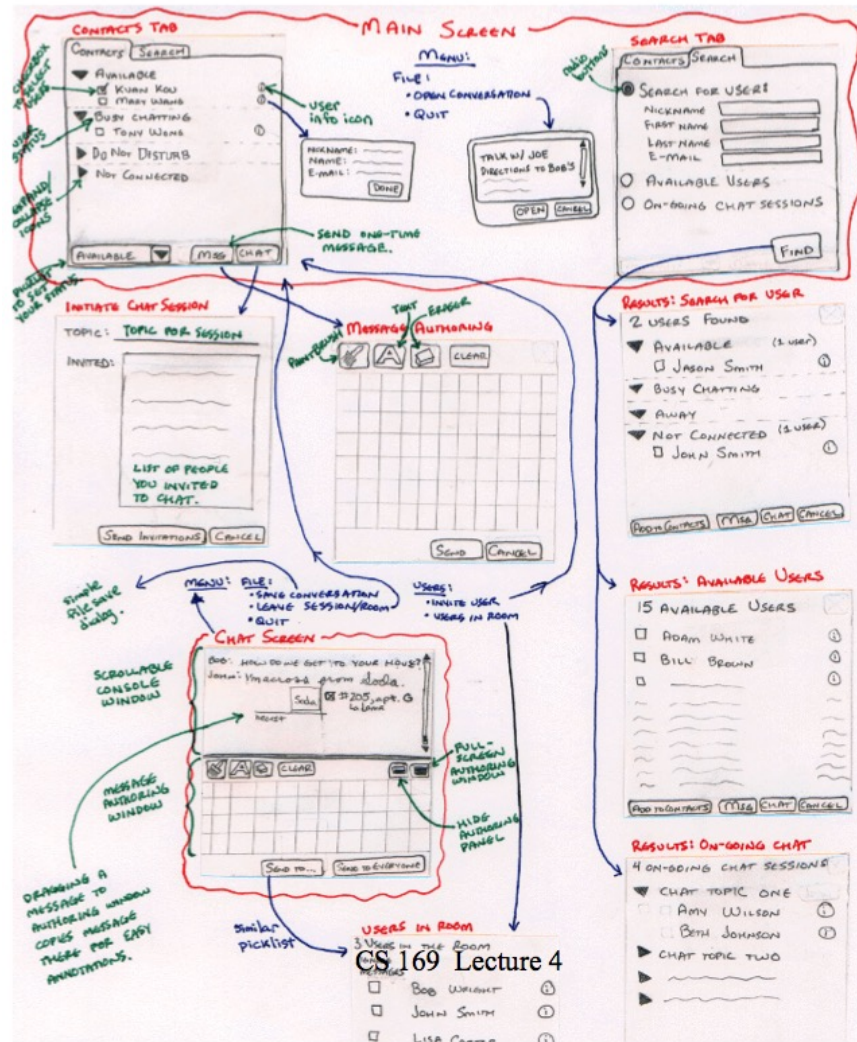 MAIN SCREEN
CONTACTS TAB
CONTACTS SEARCH
AVAILABLE
KUAN KOU
MARY WANG
BUSY CHATTING
TONY WONG
DO NOT DISTURB
NOT CONNECTED
AVAILABLE MSG CHAT
CHECKBOX
TO SELECT
USERS
USER
STATUS
EXPAND/
COLLAPSE
ICONS
PICKLIST
TO SET
YOUR STATUS.
USER
INFO ICON
NICKNAME:
NAME:
E-MAIL:
DONE
SEND ONE-TIME
MESSAGE.
MENU:
FILE:
• OPEN CONVERSATION
• QUIT
TALK W/ JOE
DIRECTIONS TO BOB'S
OPEN CANCEL
SEARCH TAB
RADIO
BUTTONS
CONTACTS SEARCH
SEARCH FOR USER:
NICKNAME
FIRST NAME
LAST NAME
E-MAIL
AVAILABLE USERS
ON-GOING CHAT SESSIONS
FIND
INITIATE CHAT SESSION
TOPIC: TOPIC FOR SESSION
INVITED:
LIST OF PEOPLE
YOU INVITED
TO CHAT.
SEND INVITATIONS CANCEL
MESSAGE AUTHORING
PAINTBRUSH
TEXT
ERASER
A CLEAR
SEND CANCEL
RESULTS: SEARCH FOR USER
2 USERS FOUND
AVAILABLE (1 USER)
JASON SMITH i
BUSY CHATTING
AWAY
NOT CONNECTED (1 USER)
JOHN SMITH i
ADD TO CONTACTS MSG CHAT CANCEL
SIMPLE
FILE SAVE
DIALOG.
MENU: FILE:
• SAVE CONVERSATION
• LEAVE SESSION/ROOM
• QUIT
USERS:
• INVITE USER
• USERS IN ROOM
CHAT SCREEN
BOB: HOW DO WE GET TO YOUR HOUSE?
John: I'm across from Soda.
Soda
#205, apt. G
HEARST
A CLEAR
SEND TO... SEND TO EVERYONE
SCROLLABLE
CONSOLE
WINDOW
MESSAGE
AUTHORING
WINDOW
FULL-
SCREEN
AUTHORING
WINDOW
HIDE
AUTHORING
PANEL
DRAGGING A
MESSAGE TO
AUTHORING WINDOW
COPIES MESSAGE
THERE FOR EASY
ANNOTATIONS.
SIMILAR
PICKLIST
USERS IN ROOM
3 USERS IN THE ROOM
CS 169 Lecture 4
BOB WRIGHT i
JOHN SMITH i
LISA
RESULTS: AVAILABLE USERS
15 AVAILABLE USERS
ADAM WHITE i
BILL BROWN i
ADD TO CONTACTS MSG CHAT CANCEL
RESULTS: ON-GOING CHAT
4 ON-GOING CHAT SESSIONS
CHAT TOPIC ONE
AMY WILSON i
BETH JOHNSON i
CHAT TOPIC TWO